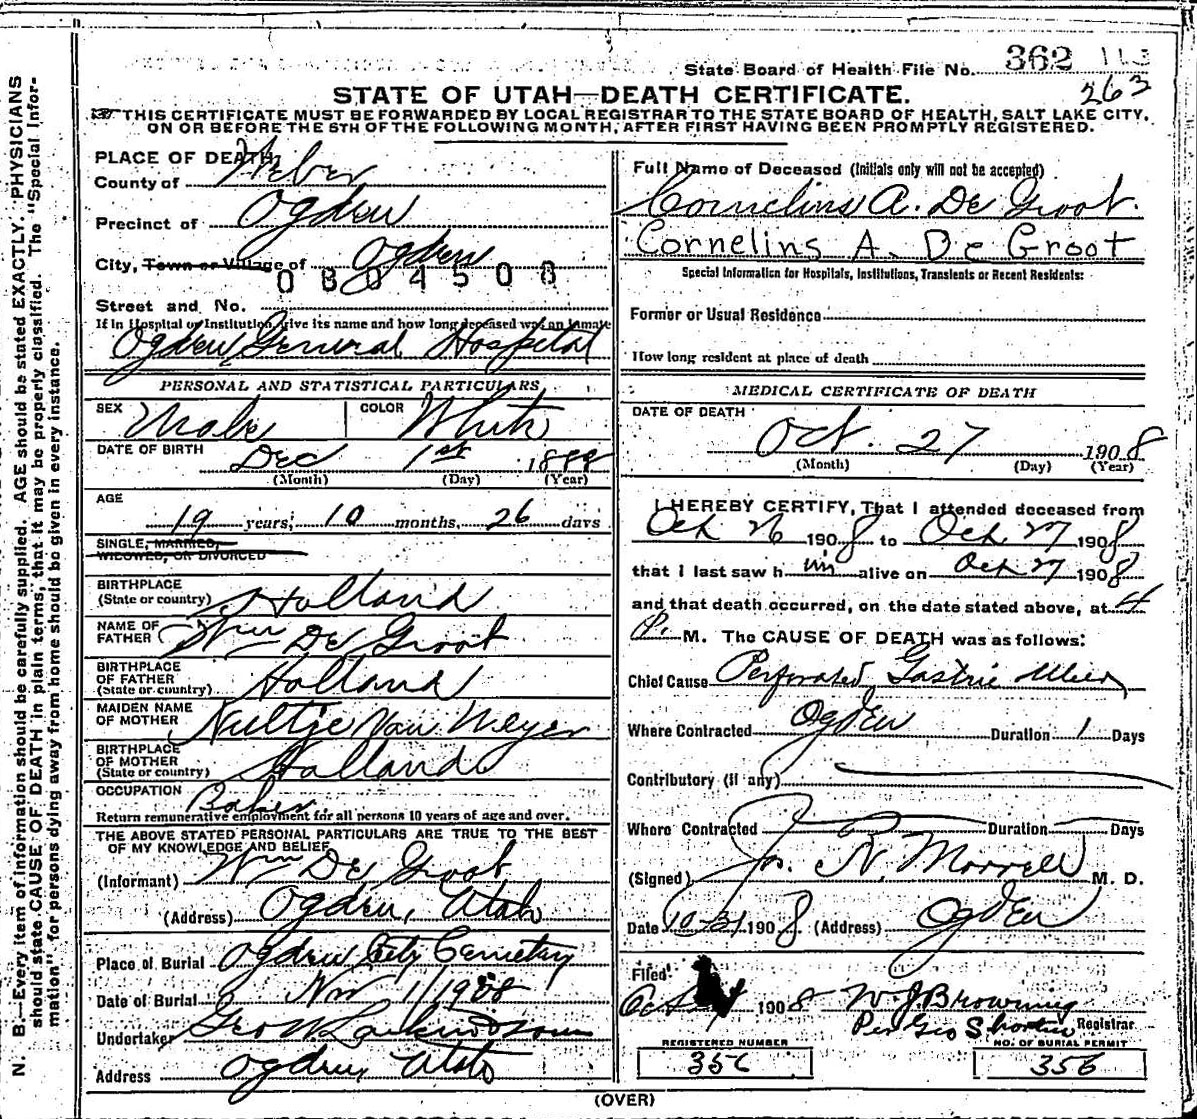 State Board of Health File No. 362 113
263
STATE OF UTAH—DEATH CERTIFICATE.
THIS CERTIFICATE MUST BE FORWARDED BY LOCAL REGISTRAR TO THE STATE BOARD OF HEALTH, SALT LAKE CITY,
ON OR BEFORE THE 5TH OF THE FOLLOWING MONTH, AFTER FIRST HAVING BEEN PROMPTLY REGISTERED.
PLACE OF DEATH
County of Weber
Precinct of Ogden
City, Town or Village of Ogden
0 8 0 4 5 0 8
Street and No.
If in Hospital or Institution, give its name and how long deceased was an inmate
Ogden General Hospital
PERSONAL AND STATISTICAL PARTICULARS
SEX Male COLOR White
DATE OF BIRTH Dec 1st 1888
(Month) (Day) (Year)
AGE
19 years, 10 months, 26 days
SINGLE, MARRIED,
WIDOWED, OR DIVORCED
BIRTHPLACE
(State or country) Holland
NAME OF
FATHER Wm De Groot
BIRTHPLACE
OF FATHER
(State or country) Holland
MAIDEN NAME
OF MOTHER Neeltje Van Weyer
BIRTHPLACE
OF MOTHER
(State or country) Holland
OCCUPATION Baker
Return remunerative employment for all persons 10 years of age and over.
THE ABOVE STATED PERSONAL PARTICULARS ARE TRUE TO THE BEST
OF MY KNOWLEDGE AND BELIEF
(Informant) Wm De Groot
(Address) Ogden, Utah
Place of Burial Ogden City Cemetery
Date of Burial Nov 1/1908
Undertaker Geo W. Larkin & Sons
Address Ogden, Utah
Full Name of Deceased (Initials only will not be accepted)
Cornelius A. De Groot.
Cornelins A. De Groot
Special Information for Hospitals, Institutions, Transients or Recent Residents:
Former or Usual Residence
How long resident at place of death
MEDICAL CERTIFICATE OF DEATH
DATE OF DEATH
Oct. 27 1908
(Month) (Day) (Year)
I HEREBY CERTIFY, That I attended deceased from
Oct 26 1908 to Oct 27 1908
that I last saw him alive on Oct 27 1908
and that death occurred, on the date stated above, at 4
P. M. The CAUSE OF DEATH was as follows:
Chief Cause Perforated Gastric Ulcer
Where Contracted Ogden Duration 1 Days
Contributory (if any)
Where Contracted Duration Days
(Signed) Jos. R. Morrell M. D.
Date 10-31 1908 (Address) Ogden
Filed
Oct 1908 W J Browning
Per Geo Shorten Registrar
REGISTERED NUMBER
356
NO. OF BURIAL PERMIT
356
(OVER)
N. B.—Every item of information should be carefully supplied. AGE should be stated EXACTLY. PHYSICIANS
should state CAUSE OF DEATH in plain terms, that it may be properly classified. The "Special Infor-
mation" for persons dying away from home should be given in every instance.